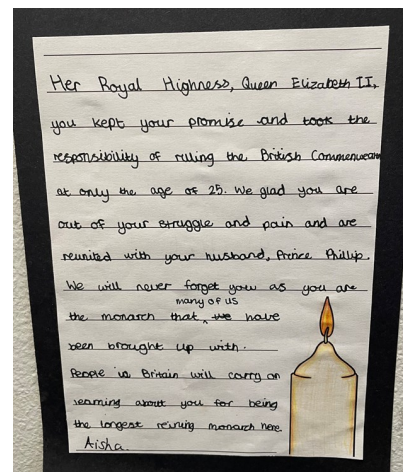 Her Royal Highness, Queen Elizabeth II,
you kept your promise and took the
responsibility of ruling the British Commonwealth
at only the age of 25. We glad you are
out of your struggle and pain and are
reunited with your husband, Prince Phillip.
We will never forget you as you are
many of us
the monarch that ^ we have
been brought up with.
People in Britain will carry on
learning about you for being
the longest reining monarch here.
Aisha.